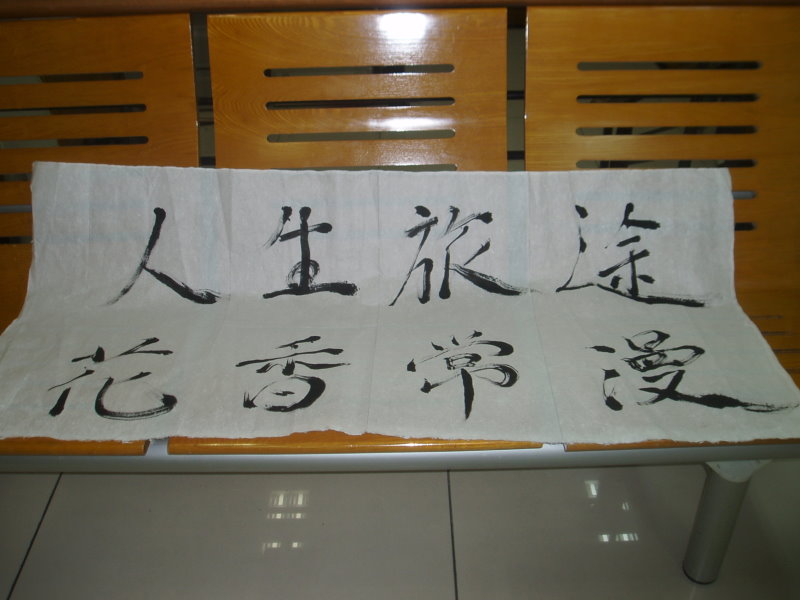 人生旅途
花香常漫